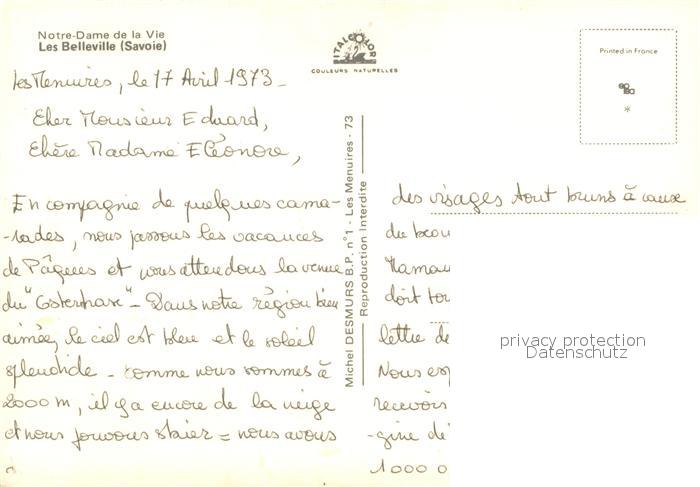 Notre-Dame de la Vie
Les Belleville (Savoie)
ITALCOLOR
COULEURS NATURELLES
Printed in France
Les Menuires, le 17 Avril 1973 -
Cher Monsieur Eduard,
Chère Madame Eléonore,
En compagnie de quelques cama-
-rades, nous passons les vacances
de Pâques et vous attendons la venue
du "Osterhase" - Dans notre région bien
aimée, le ciel est bleu et le soleil
splendide - comme nous sommes à
2000 m, il y a encore de la neige
et nous pouvons skier = nous avons
Michel DESMURS B.P. n°1 - Les Menuires - 73
Reproduction Interdite
des visages tout bruns à cause
du beau
Maman
doit
lettre de
Nous esp
recevoir
-gine de
1000
privacy protection
Datenschutz